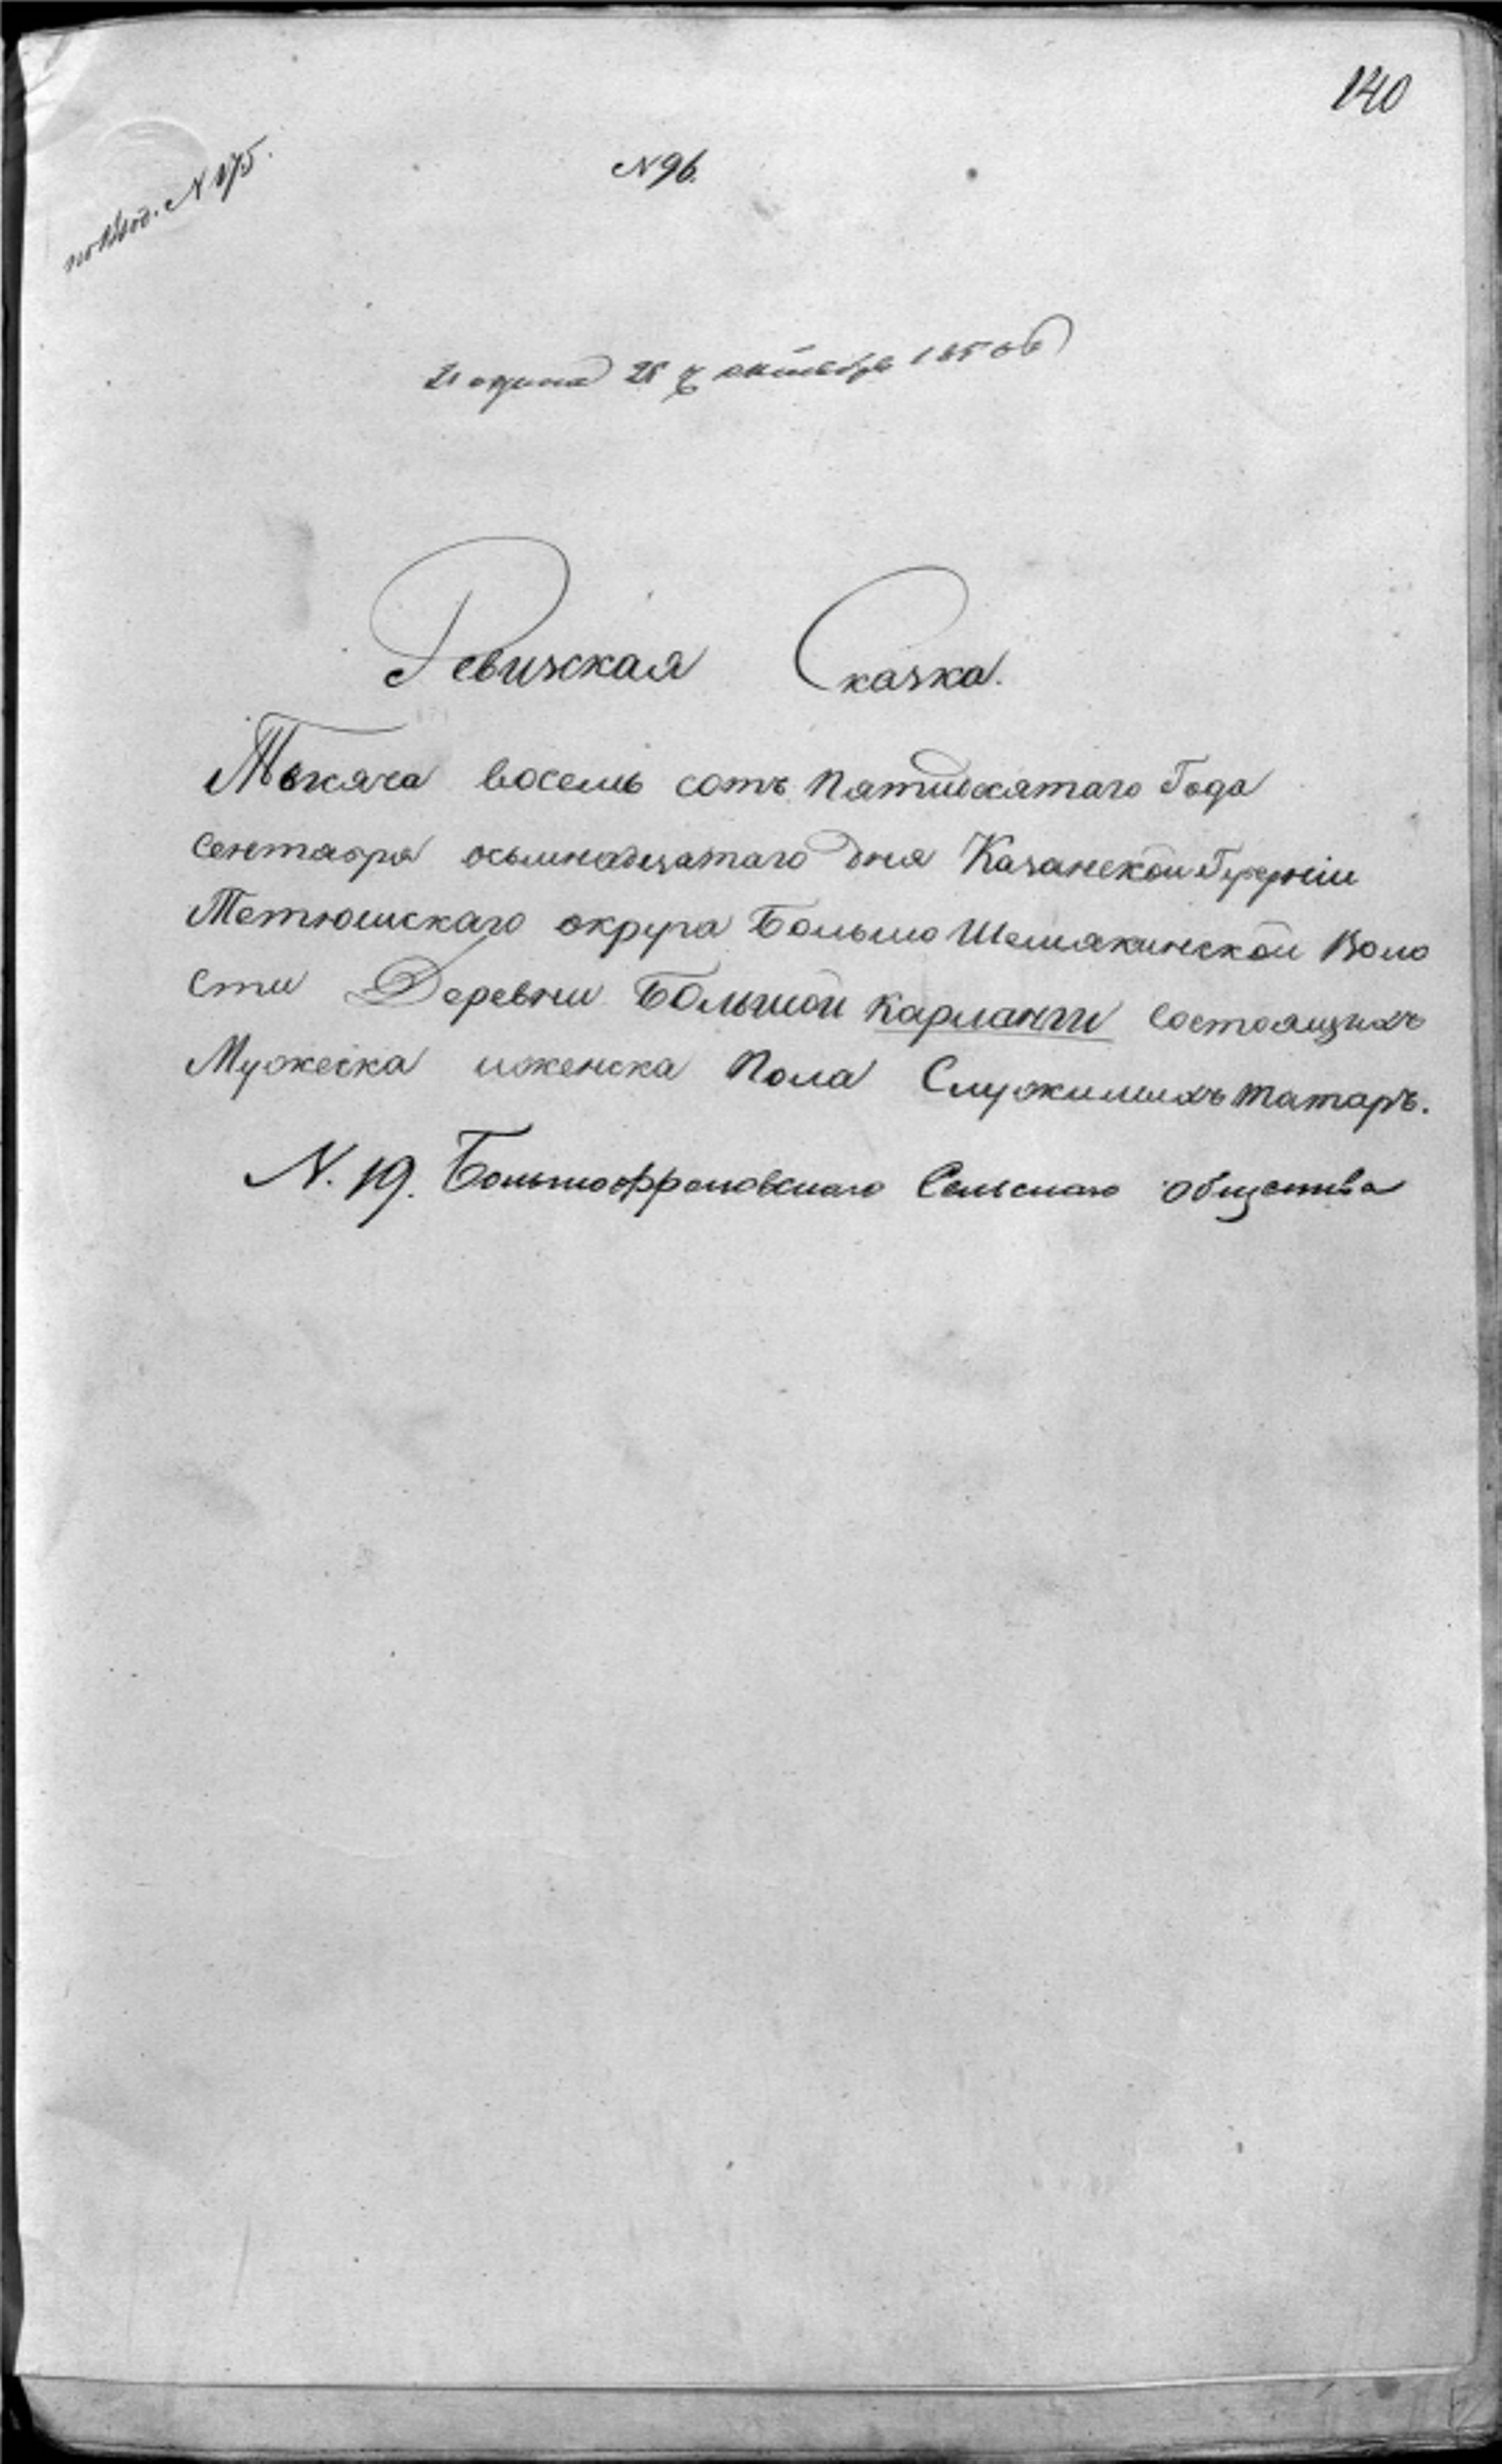 140
по Вход. N 175.
N 96.
Подана 25 октября 1850 г
Ревизская Сказка.
Тысяча восемь сотъ Пятидесятаго Года
Сентября осьмнадцатаго дня Казанской Губерніи
Тетюшскаго округа Большо Шемякинской Воло
сти Деревни Большой Карланги состоящихъ
Мужеска и женска Пола Служилыхъ татаръ.
N. 19. Большофроловскаго Сельскаго общества